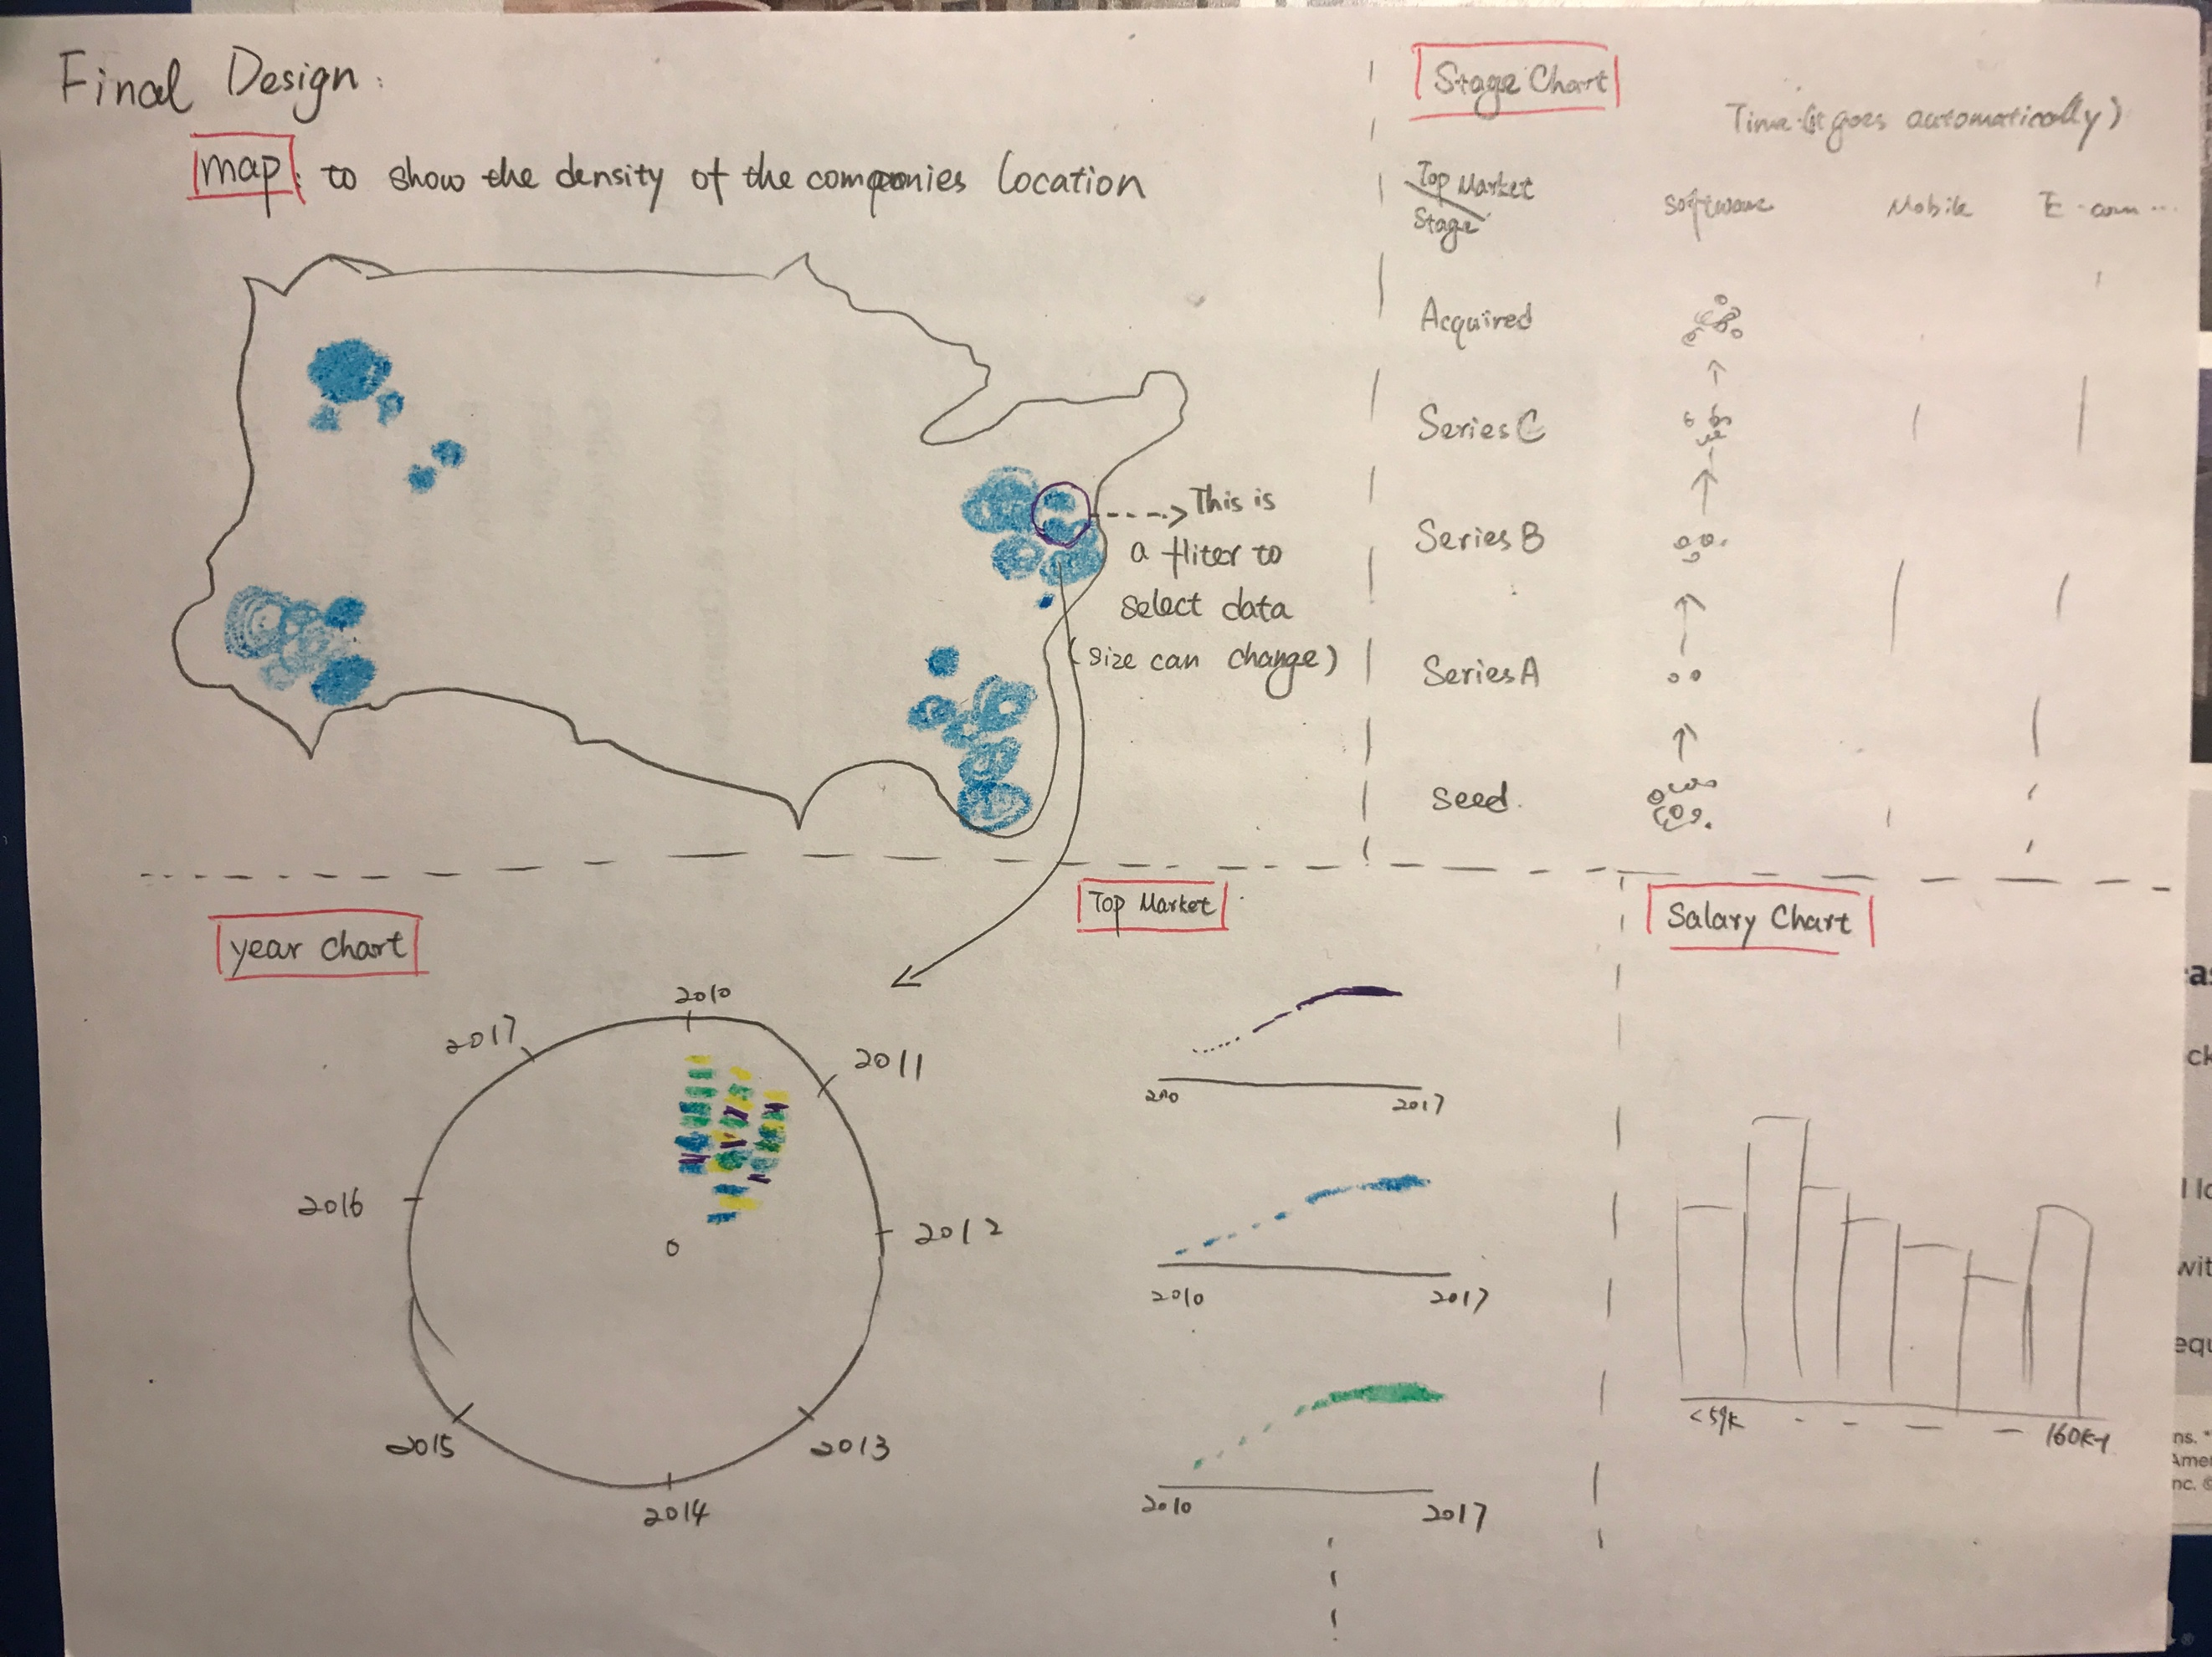 Final Design:
map: to show the density of the companies location
This is
a fliter to
select data
(size can change)
Stage Chart
Time (it goes automatically)
Top Market
Stage
software Mobile E-com...
Acquired
Series C
Series B
Series A
seed.
year chart
2010
2011
2012
2013
2014
2015
2016
2017
0
Top Market
2010 2017
2010 2017
2010 2017
Salary Chart
<59K - - - - 160K+
ns.
Amer
nc. ©